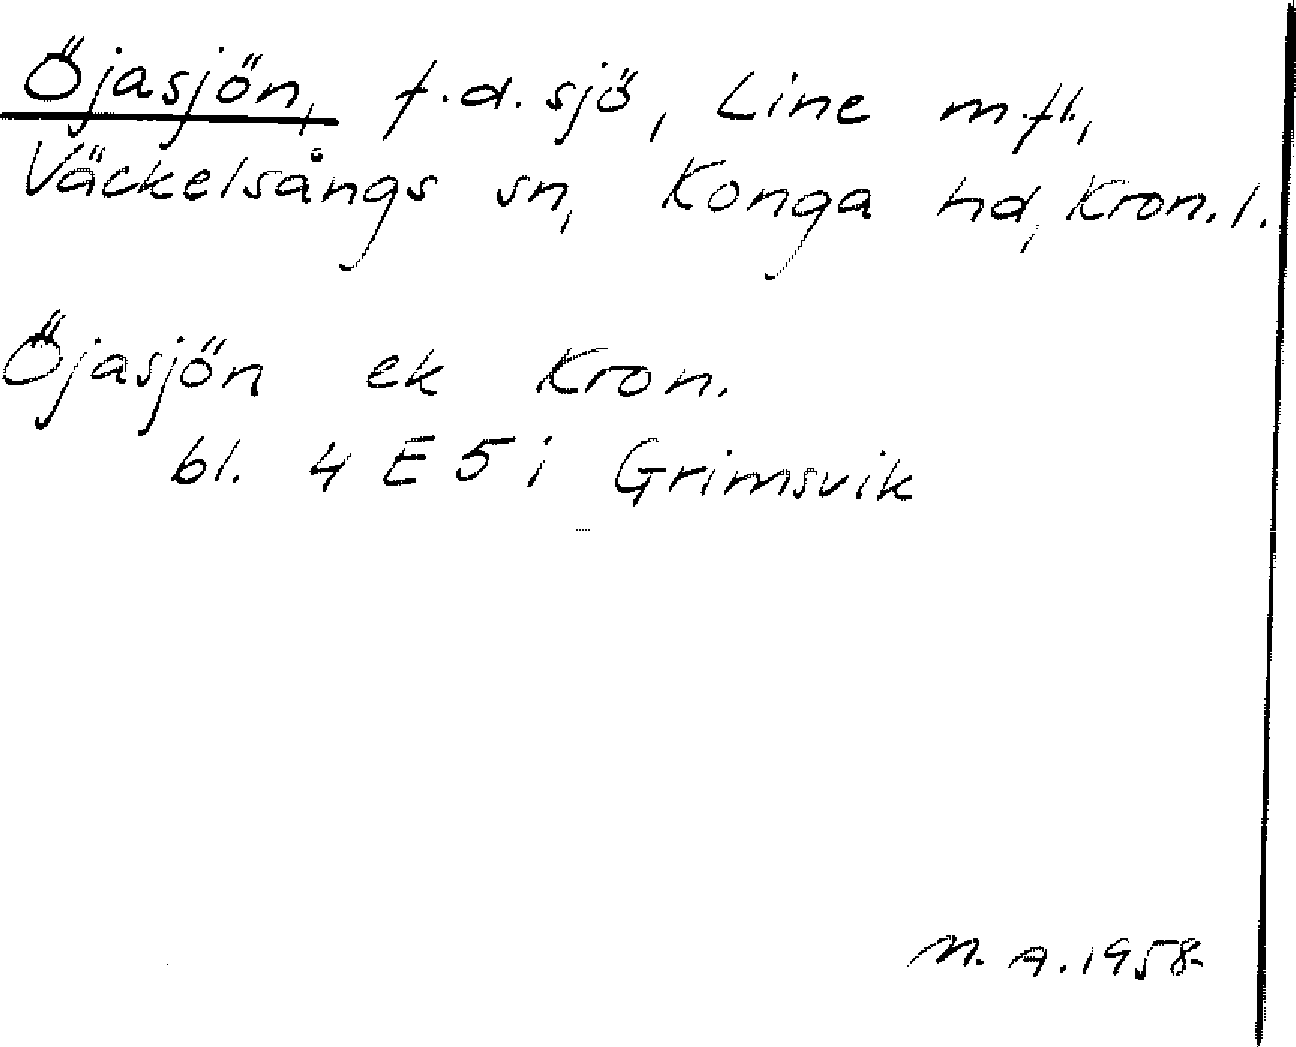 Öjasjön, f.d. sjö, Line m.fl.,
Väckelsångs sn, Konga hd, Kron. l.
Öjasjön ek Kron.
bl. 4 E 5 i Grimsvik
M. A. 1958